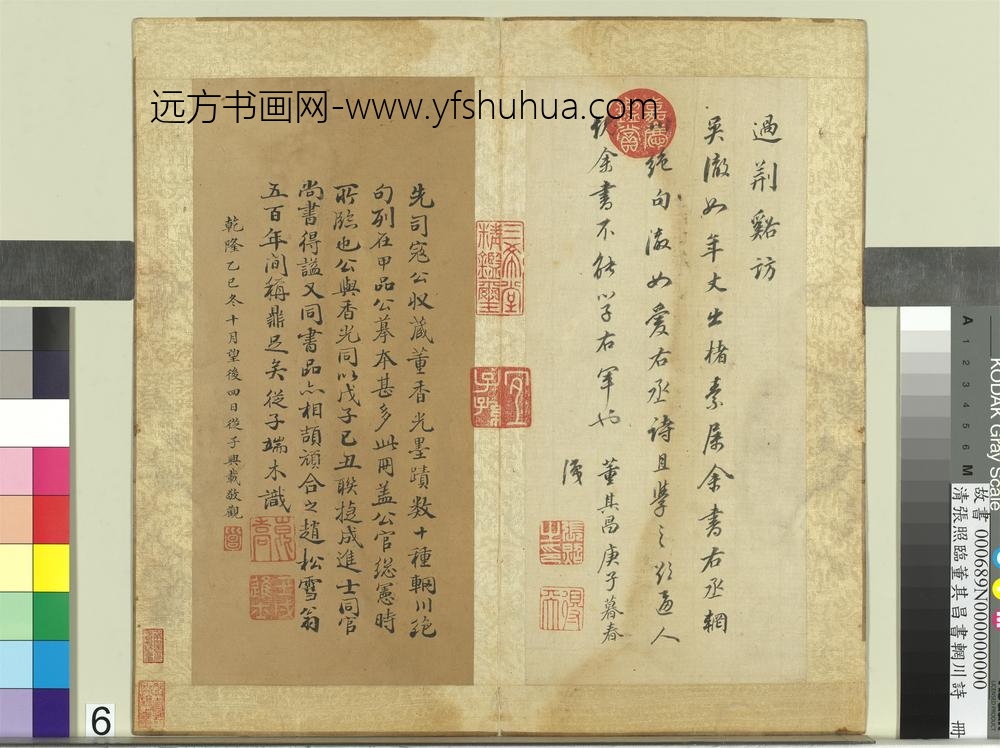 远方书画网-www.yfshuhua.com
過荆谿訪
吳澈如年丈出楮素屬余書右丞輞
絶句澈如愛右丞詩且學之欲過人
余書不能學右軍也 董其昌庚子暮春
先司寇公收藏董香光墨蹟數十種輞川絶
句列在甲品公摹本甚多此冊蓋公官總憲時
所臨也公與香光同以戊子己丑聯捷成進士同官
尚書得諡又同書品亦相頡頏合之趙松雪翁
五百年間稱鼎足矣從子端木識
乾隆乙巳冬十月望後四日從子興載敬觀
三希堂精鑑璽
宜子孫
6
KODAK Gray Scale
A 1 2 3 4 5 6 M
故書 000689N000000000
清張照臨董其昌書輞川詩 冊